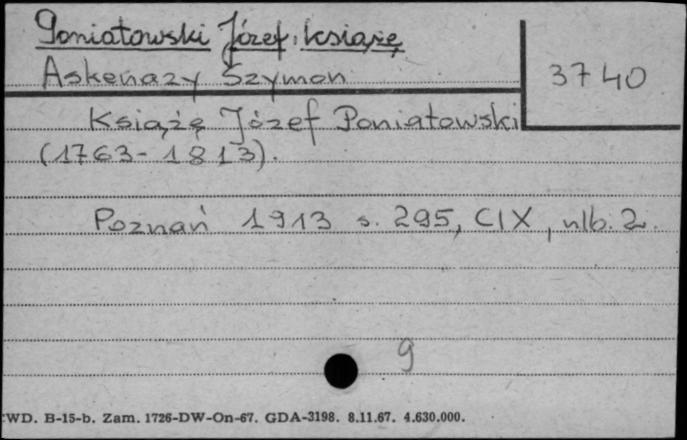 Poniatowski Józef, książę
Askenazy Szymon
3740
Książę Józef Poniatowski
(1763-1813).
Poznań 1913 s. 295, CIX, nlb. 2.
9
WD. B-15-b. Zam. 1726-DW-On-67. GDA-3198. 8.11.67. 4.630.000.